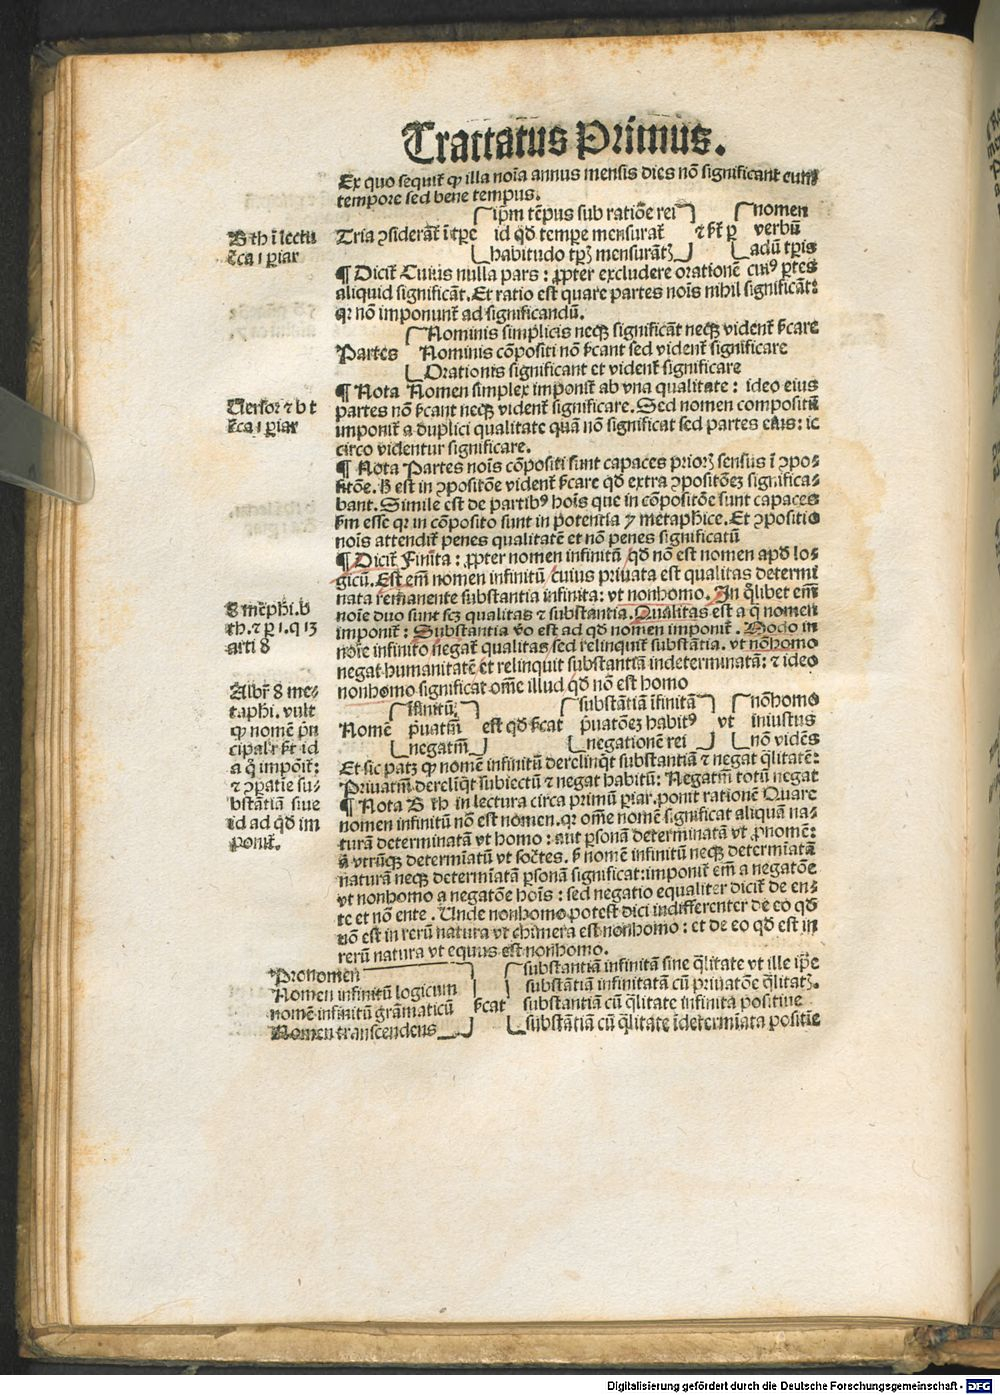 Tractatus Primus.
Ex quo sequit̄ ꝙ illa noīa annus mensis dies nō significant cum
tempore sed bene tempus.
B th ī lectu
ca 1 ꝑiar
Tria ꝯsiderāt̄ ī tꝑe
ip̄m tēpus sub ratiōe rei
id qd̄ tempe mensurat̄
habitudo tꝑꝫ mensurātꝫ
nomen
verbū
adū tꝑis
¶ Dicit̄ Cuius nulla pars : ꝓpter excludere orationē cuiꝰ ꝑtes
aliquid significāt. Et ratio est quare partes noīs nihil significāt:
qꝛ nō imponunt̄ ad significandū.
Partes
Nominis simplicis neqꝫ significāt neqꝫ vident̄ ẜcare
Nominis cōpositi nō ẜcant sed vident̄ significare
Orationis significant et vident̄ significare
Versor ⁊ b t
ca 1 ꝑiar
¶ Nota Nomen simplex imponit̄ ab vna qualitate : ideo eius
partes nō ẜcant neqꝫ vident̄ significare. Sed nomen compositū
imponit̄ a duplici qualitate quā nō significat sed partes eius: ic
circo videntur significare.
¶ Nota Partes noīs cōpositi sunt capaces prioꝝ sensus ī ꝯpo-
sitōe. est in ꝯpositōe vident̄ ẜcare qd̄ extra ꝯpositōeꝫ significa-
bant. Simile est de partibꝰ hoīs que in cōpositōe sunt capaces
esse qꝛ in cōposito sunt in potentia ⁊ metaphice. Et ꝯpositio
noīs attendit̄ penes qualitatē et nō penes significatū
¶ Dicit̄ Finita : ꝓpter nomen infinitū qd̄ nō est nomen apd̄ lo-
gicū. Est em̄ nomen infinitū cuius priuata est qualitas determi
nata remanente substantia infinita: vt nonhomo. In qͥlibet em̄
noīe duo sunt scꝫ qualitas ⁊ substantia. Qualitas est a qͣ nomen
imponit̄ : Substantia v̄o est ad qd̄ nomen imponit̄ . Modo in
noīe infinito negat̄ qualitas sed relinquit̄ substantia. vt nōhomo
negat humanitatē et relinquit substantiā indeterminatā: ⁊ ideo
nonhomo significat om̄e illud qd̄ nō est homo
8 metꝑhi. b
th. ⁊ ꝑ 1. q 13
arti 8
Albt̄ 8 me-
taphi. vult
ꝙ nomē pͥn
cipalr̄ ẜt id
a qͦ impōit̄:
⁊ ꝯꝑatie su-
bstātiā siue
id ad qd̄ im
ponit̄.
Nomē
īfinitū
p̄uatm̄
negatm̄
est qd̄ ẜcat
substātiā īfinitā
p̄uatōeꝫ habitꝰ
negationē rei
vt
nōhomo
iniustus
nō vidēs
Et sic patꝫ ꝙ nomē infinitū derelinqͥt substantiā ⁊ negat qͣlitatē:
Priuatm̄ derelīqͥt subiectū ⁊ negat habitū: Negatm̄ totū negat
¶ Nota B th in lectura circa primū ꝑiar. ponit rationē Quare
nomen infinitū nō est nomen. qꝛ om̄e nomē significat aliquā na-
turā determinatā vt homo : aut ꝑsonā determinatā vt ꝓnomē:
vtrūqꝫ determīatū vt sortes. nomē infinitū neqꝫ determinatā
naturā neqꝫ determīatā ꝑsonā significat: imponit̄ em̄ a negatōe
vt nonhomo a negatōe hoīs : sed negatio equaliter dicit̄ de en-
te et nō ente . Unde nonhomo potest dici indifferenter de eo qd̄
nō est in rerū natura vt chimera est nonhomo : et de eo qd̄ est in
rerū natura vt equus est nonhomo.
Pronomen
Nomen infinitū logicum
nomē infinitū grāmaticū
Nomen transcendens
ẜcat
substantiā infinitā sine qͣlitate vt ille ip̄e
substātiā infinitatam cū priuatōe qͣlitatꝫ.
substantiā cū qͣlitate infinita positiue
substātiā cū qͣlitate īdeterm̄iata positiē
Digitalisierung gefördert durch die Deutsche Forschungsgemeinschaft - DFG